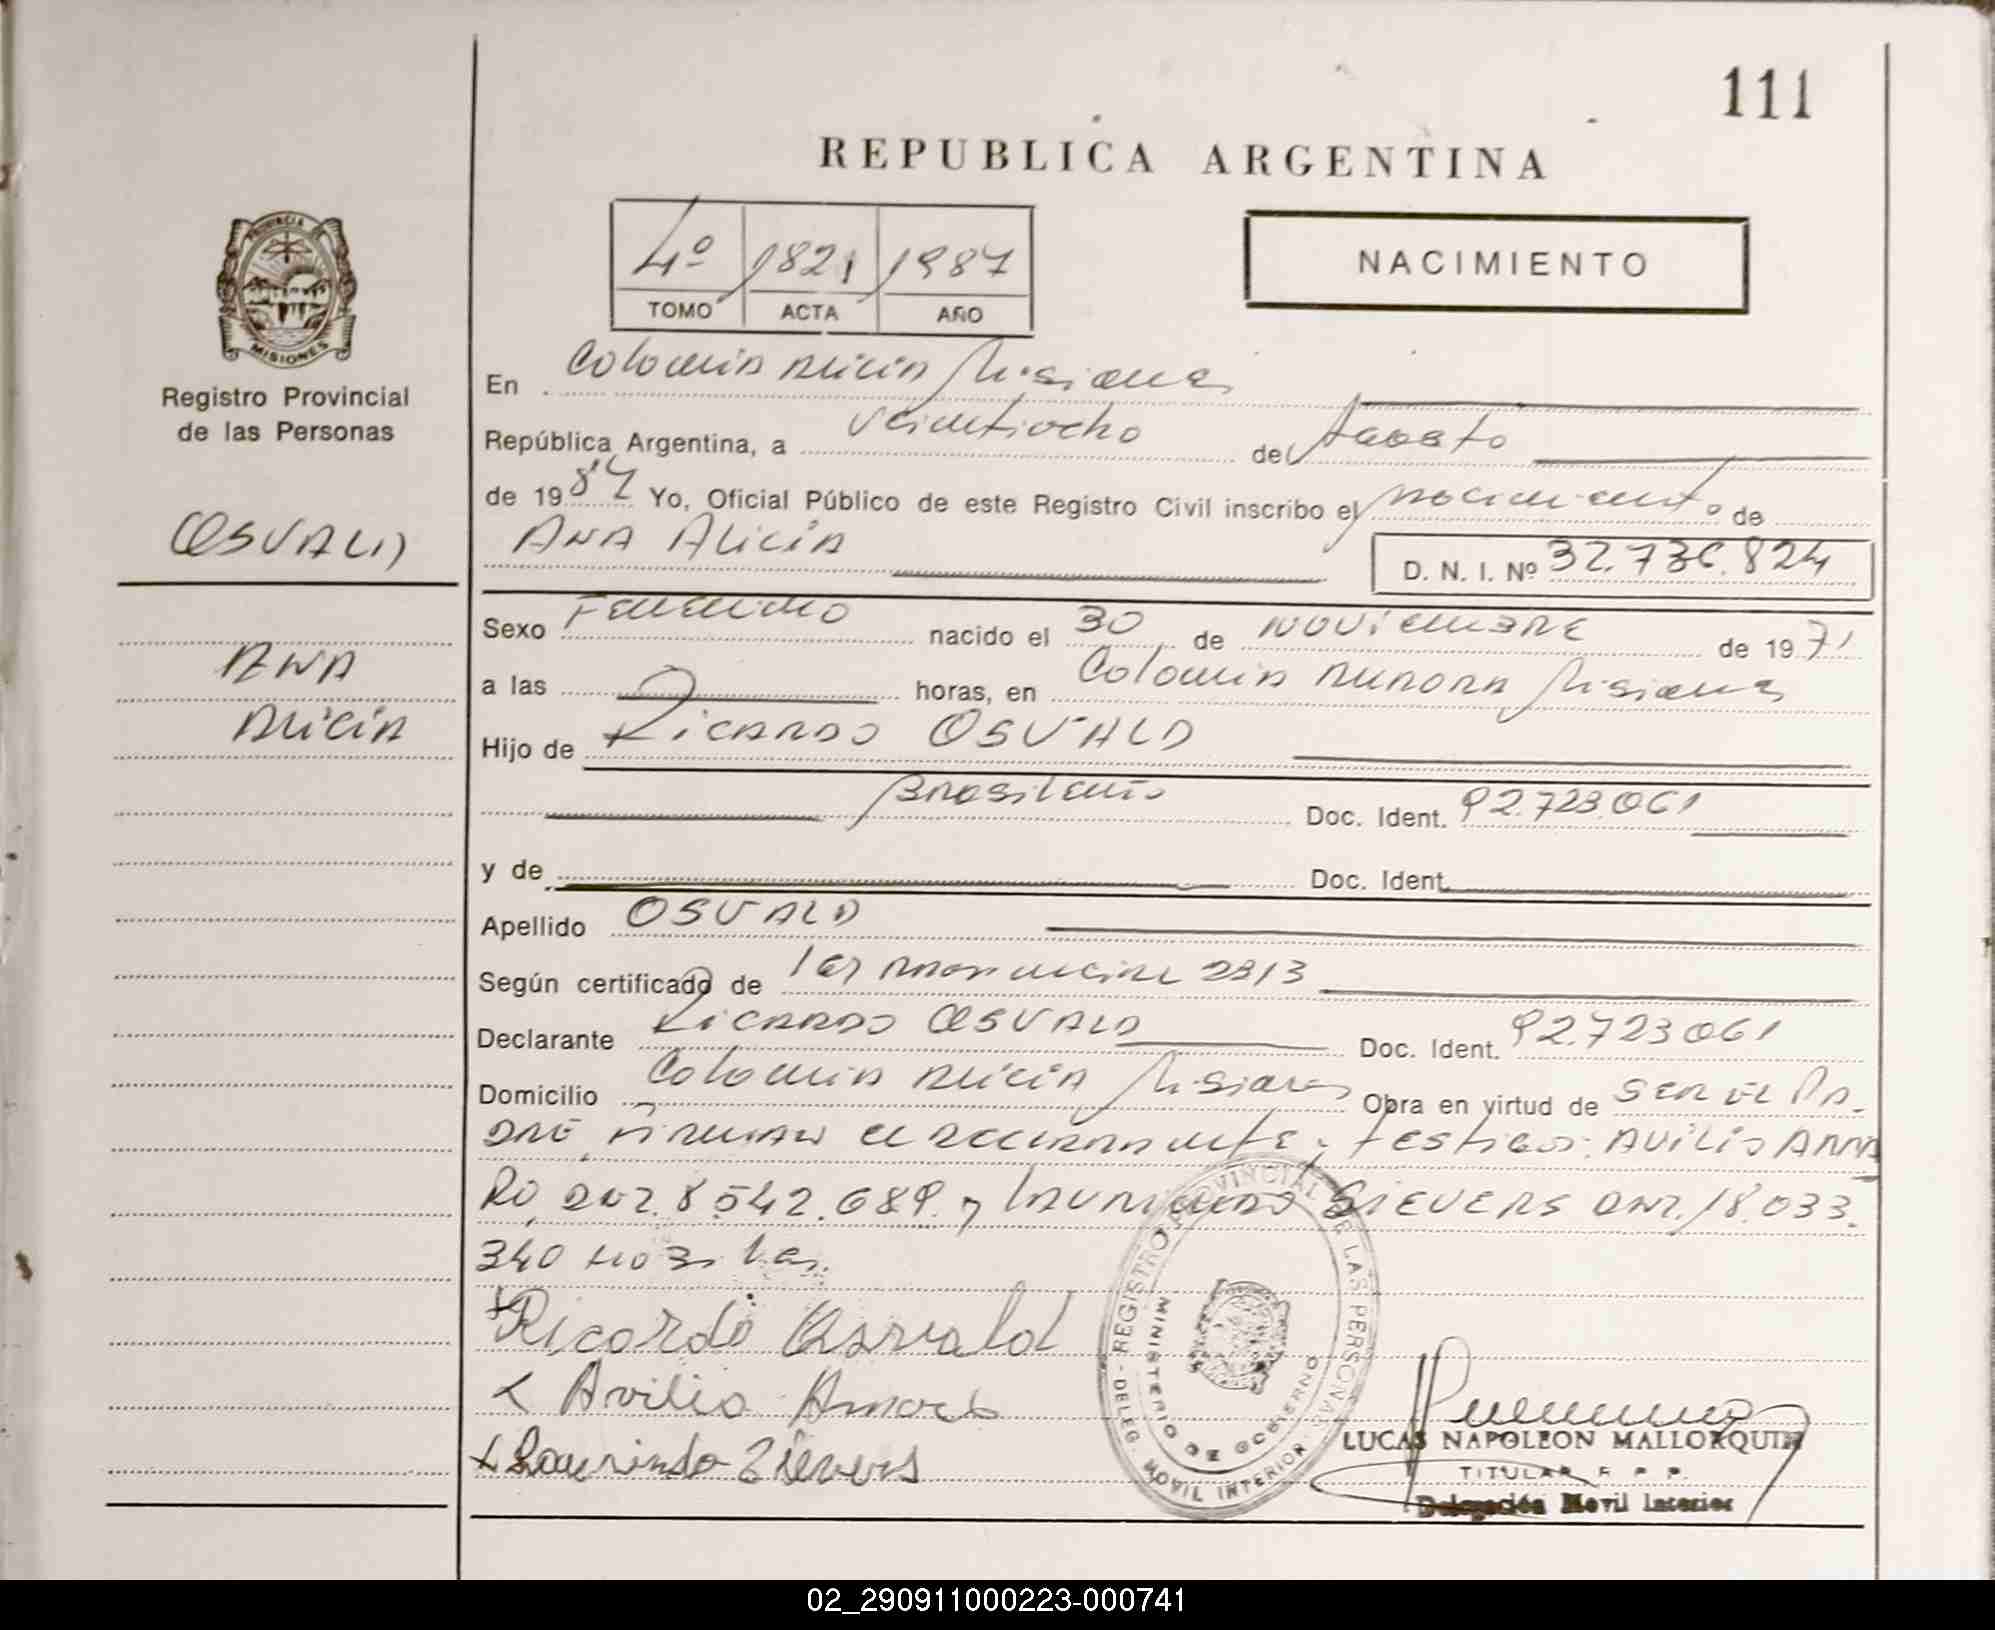 111
REPUBLICA ARGENTINA
4º 1821 1987
TOMO ACTA AÑO
NACIMIENTO
PROVINCIA DE
MISIONES
Registro Provincial
de las Personas
OSVALD
ANA
ALICIA
En Colonia Alicia Misiones
República Argentina, a veintiocho de Agosto
de 1987 Yo, Oficial Público de este Registro Civil inscribo el nacimiento de
ANA ALICIA D. N. I. Nº 32.736.824
Sexo Femenino nacido el 30 de NOVIEMBRE de 1971
a las horas, en Colonia AURORA Misiones
Hijo de RICARDO OSVALD
Brasileño Doc. Ident. 92.723.061
y de Doc. Ident.
Apellido OSVALD
Según certificado de ley 2813
Declarante RICARDO OSVALD Doc. Ident. 92.723.061
Domicilio Colonia Alicia Misiones Obra en virtud de SER EL PA-
DRE, FIRMAN el declarante y testigos: AVILIO AMA
RO, DNI. 8.542.689. y LAURINDO SIEVERS DNI. 18.033.
340
Ricardo Osvald
x Avilio Amaro
x Laurindo Sievers
REGISTRO PROVINCIAL DE LAS PERSONAS
MINISTERIO DE GOBIERNO
DELEG. MOVIL INTERIOR
LUCAS NAPOLEON MALLORQUIN
TITULAR F. P. P.
Delegación Movil Interior
02_290911000223-000741